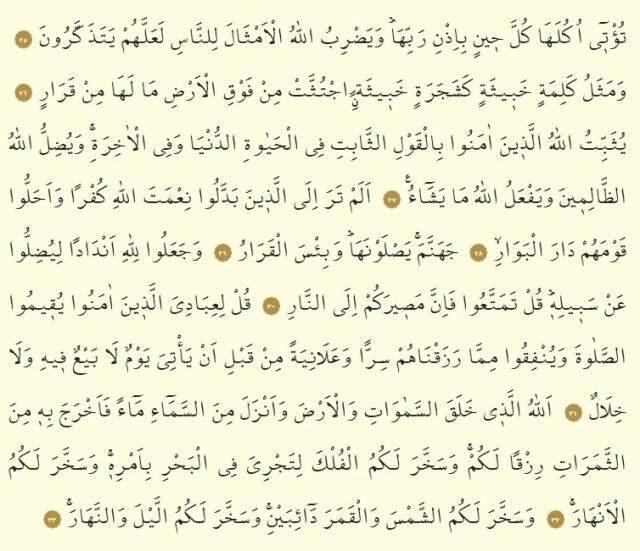 تُؤْتٖٓى اُكُلَهَا كُلَّ حٖينٍ بِاِذْنِ رَبِّهَاؕ وَيَضْرِبُ اللّٰهُ الْاَمْثَالَ لِلنَّاسِ لَعَلَّهُمْ يَتَذَكَّرُونَ ٢٥
وَمَثَلُ كَلِمَةٍ خَبٖيثَةٍ كَشَجَرَةٍ خَبٖيثَةٍۨ اجْتُثَّتْ مِنْ فَوْقِ الْاَرْضِ مَا لَهَا مِنْ قَرَارٍ ٢٦
يُثَبِّتُ اللّٰهُ الَّذٖينَ اٰمَنُوا بِالْقَوْلِ الثَّابِتِ فِى الْحَيٰوةِ الدُّنْيَا وَفِى الْاٰخِرَةِۚ وَيُضِلُّ اللّٰهُ
الظَّالِمٖينَ وَيَفْعَلُ اللّٰهُ مَا يَشَٓاءُࣖ ٢٧ اَلَمْ تَرَ اِلَى الَّذٖينَ بَدَّلُوا نِعْمَتَ اللّٰهِ كُفْرًا وَاَحَلُّوا
قَوْمَهُمْ دَارَ الْبَوَارِۙ ٢٨ جَهَنَّمَۚ يَصْلَوْنَهَاؕ وَبِئْسَ الْقَرَارُ ٢٩ وَجَعَلُوا لِلّٰهِ اَنْدَادًا لِيُضِلُّوا
عَنْ سَبٖيلِهٖؕ قُلْ تَمَتَّعُوا فَاِنَّ مَصٖيرَكُمْ اِلَى النَّارِ ٣٠ قُلْ لِعِبَادِىَ الَّذٖينَ اٰمَنُوا يُقٖيمُوا
الصَّلٰوةَ وَيُنْفِقُوا مِمَّا رَزَقْنَاهُمْ سِرًّا وَعَلَانِيَةً مِنْ قَبْلِ اَنْ يَأْتِىَ يَوْمٌ لَا بَيْعٌ فٖيهِ وَلَا
خِلَالٌ ٣١ اَللّٰهُ الَّذٖى خَلَقَ السَّمٰوَاتِ وَالْاَرْضَ وَاَنْزَلَ مِنَ السَّمَٓاءِ مَٓاءً فَاَخْرَجَ بِهٖ مِنَ
الثَّمَرَاتِ رِزْقًا لَكُمْۚ وَسَخَّرَ لَكُمُ الْفُلْكَ لِتَجْرِىَ فِى الْبَحْرِ بِاَمْرِهٖۚ وَسَخَّرَ لَكُمُ
الْاَنْهَارَۚ ٣٢ وَسَخَّرَ لَكُمُ الشَّمْسَ وَالْقَمَرَ دَٓائِبَيْنِۚ وَسَخَّرَ لَكُمُ الَّيْلَ وَالنَّهَارَۚ ٣٣